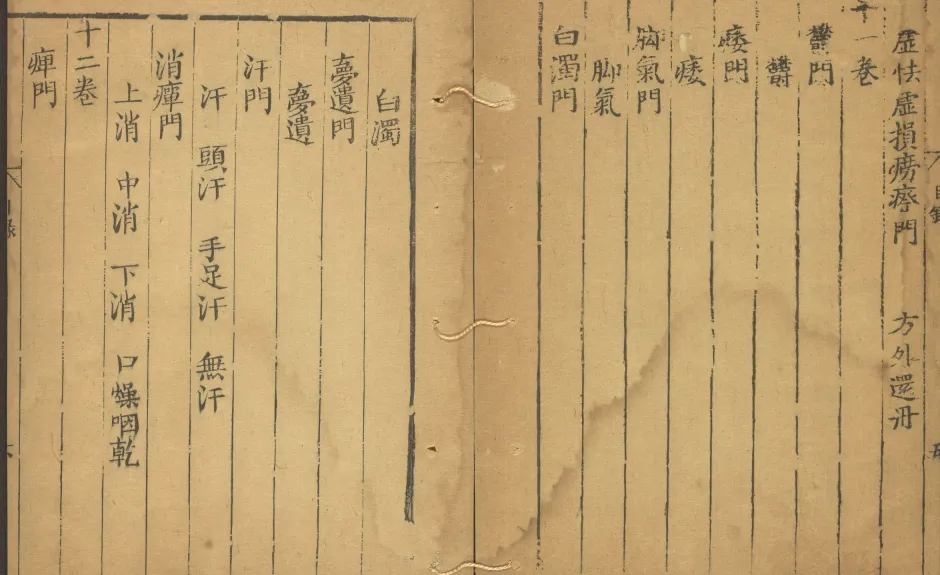 目錄
虛怯虛損癆瘵門 方外還丹
十一卷
鬱門
鬱
痿門
痿
脚氣門
脚氣
白濁門
白濁
夢遺門
夢遺
汗門
汗 頭汗 手足汗 無汗
消癉門
上消 中消 下消 口燥咽乾
十二卷
痺門